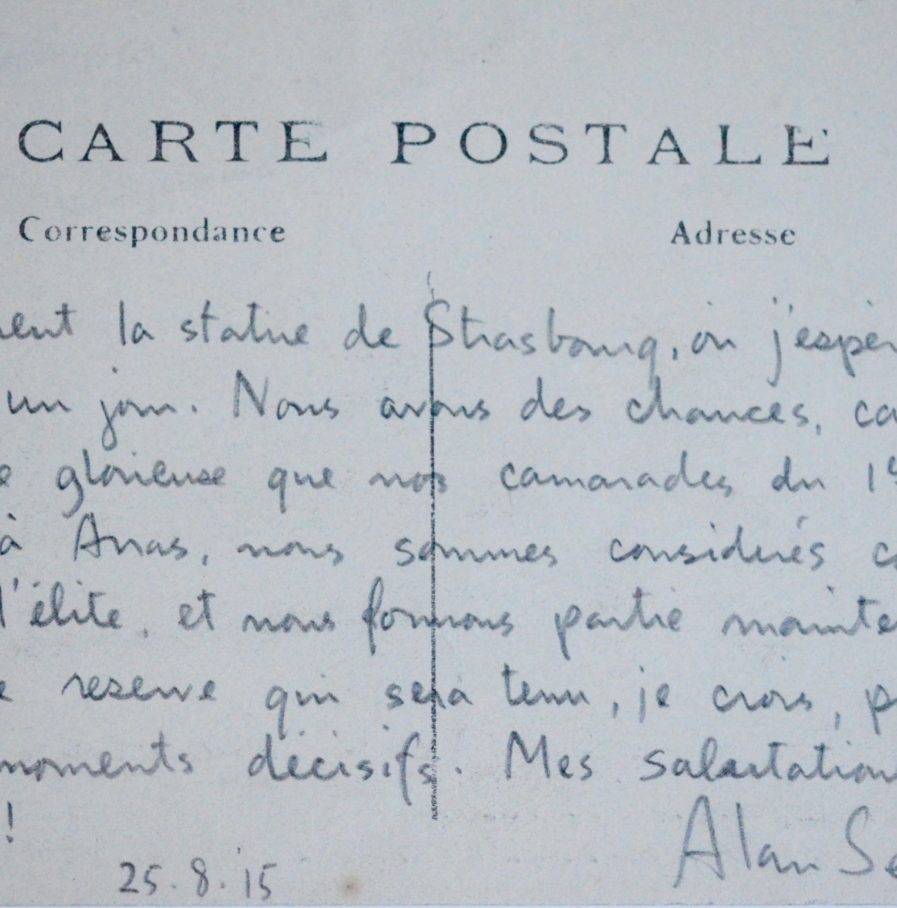 CARTE POSTALE
Correspondance Adresse
ent la statue de Strasbourg, où j'espèr
un jour. Nous avons des chances, ca
e glorieuse que nos camarades du 1
à Arras, nous sommes considérés c
l'élite, et nous formons partie mainte
e reserve qui sera tenu, je crois, p
moments décisifs. Mes salutation
!
25.8.15 Alan Se